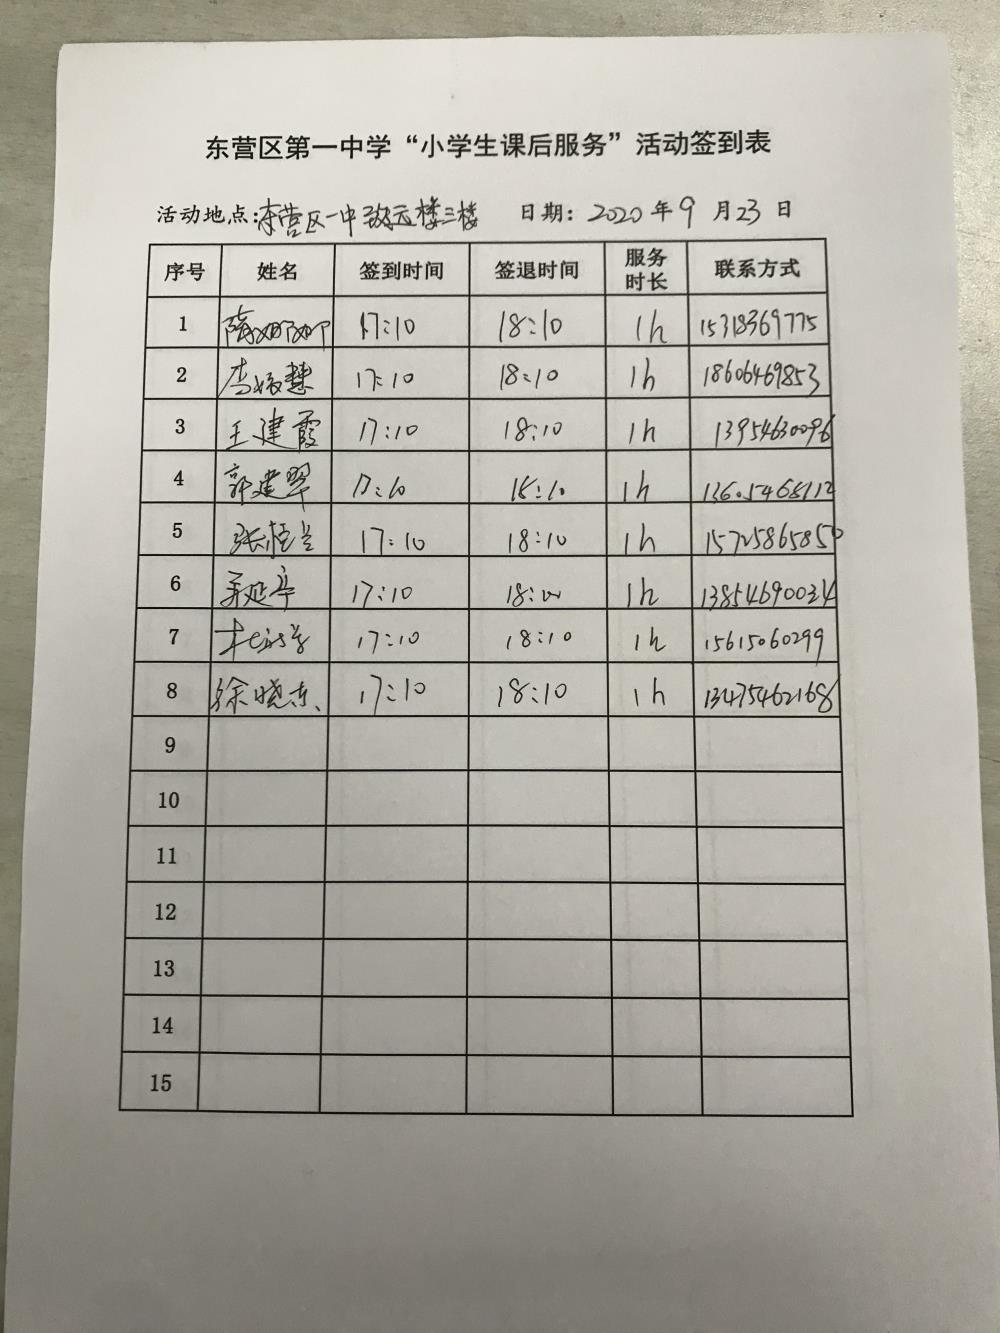 东营区第一中学“小学生课后服务”活动签到表
活动地点:东营区一中致远楼三楼 日期: 2020 年 9 月 23 日
序号 姓名 签到时间 签退时间 服务时长 联系方式
1 隋娜娜 17:10 18:10 1h 15318369775
2 李媛慧 17:10 18:10 1h 18606469853
3 王建霞 17:10 18:10 1h 13954630096
4 郭建翠 17:10 18:10 1h 13605468112
5 张恒兰 17:10 18:10 1h 15725865850
6 17:10 18:10 1h 13854690034
7 17:10 18:10 1h 15615060299
8 徐晓东 17:10 18:10 1h 13475462168
9
10
11
12
13
14
15